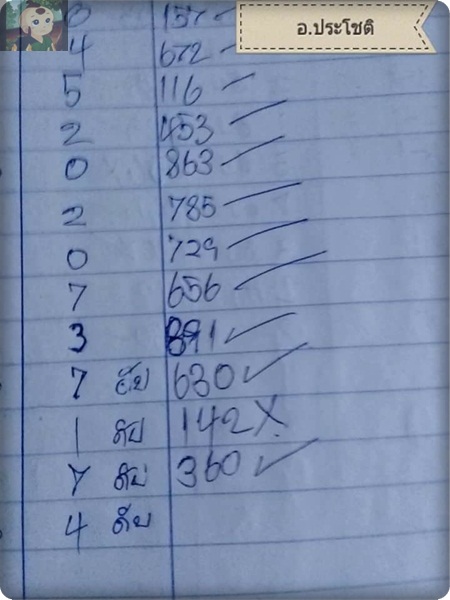 อ.ประโชติ
0 157
4 672
5 116
2 453
0 863
2 785
0 729
7 656
3 891
7 ดับ 630
1 ดับ 142 X
7 ดับ 360
4 ดับ